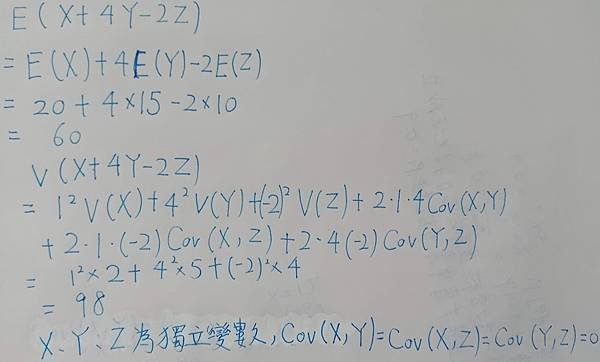 E(X+4Y-2Z)
= E(X)+4E(Y)-2E(Z)
= 20+4×15-2×10
= 60
V(X+4Y-2Z)
= 1²V(X)+4²V(Y)+(-2)²V(Z)+2·1·4Cov(X,Y)
+2·1·(-2)Cov(X,Z)+2·4(-2)Cov(Y,Z)
= 1²×2+4²×5+(-2)²×4
= 98
X、Y、Z為獨立變數,Cov(X,Y)=Cov(X,Z)=Cov(Y,Z)=0